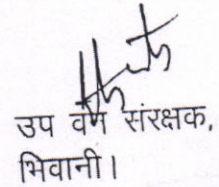 उप वन संरक्षक,
भिवानी।